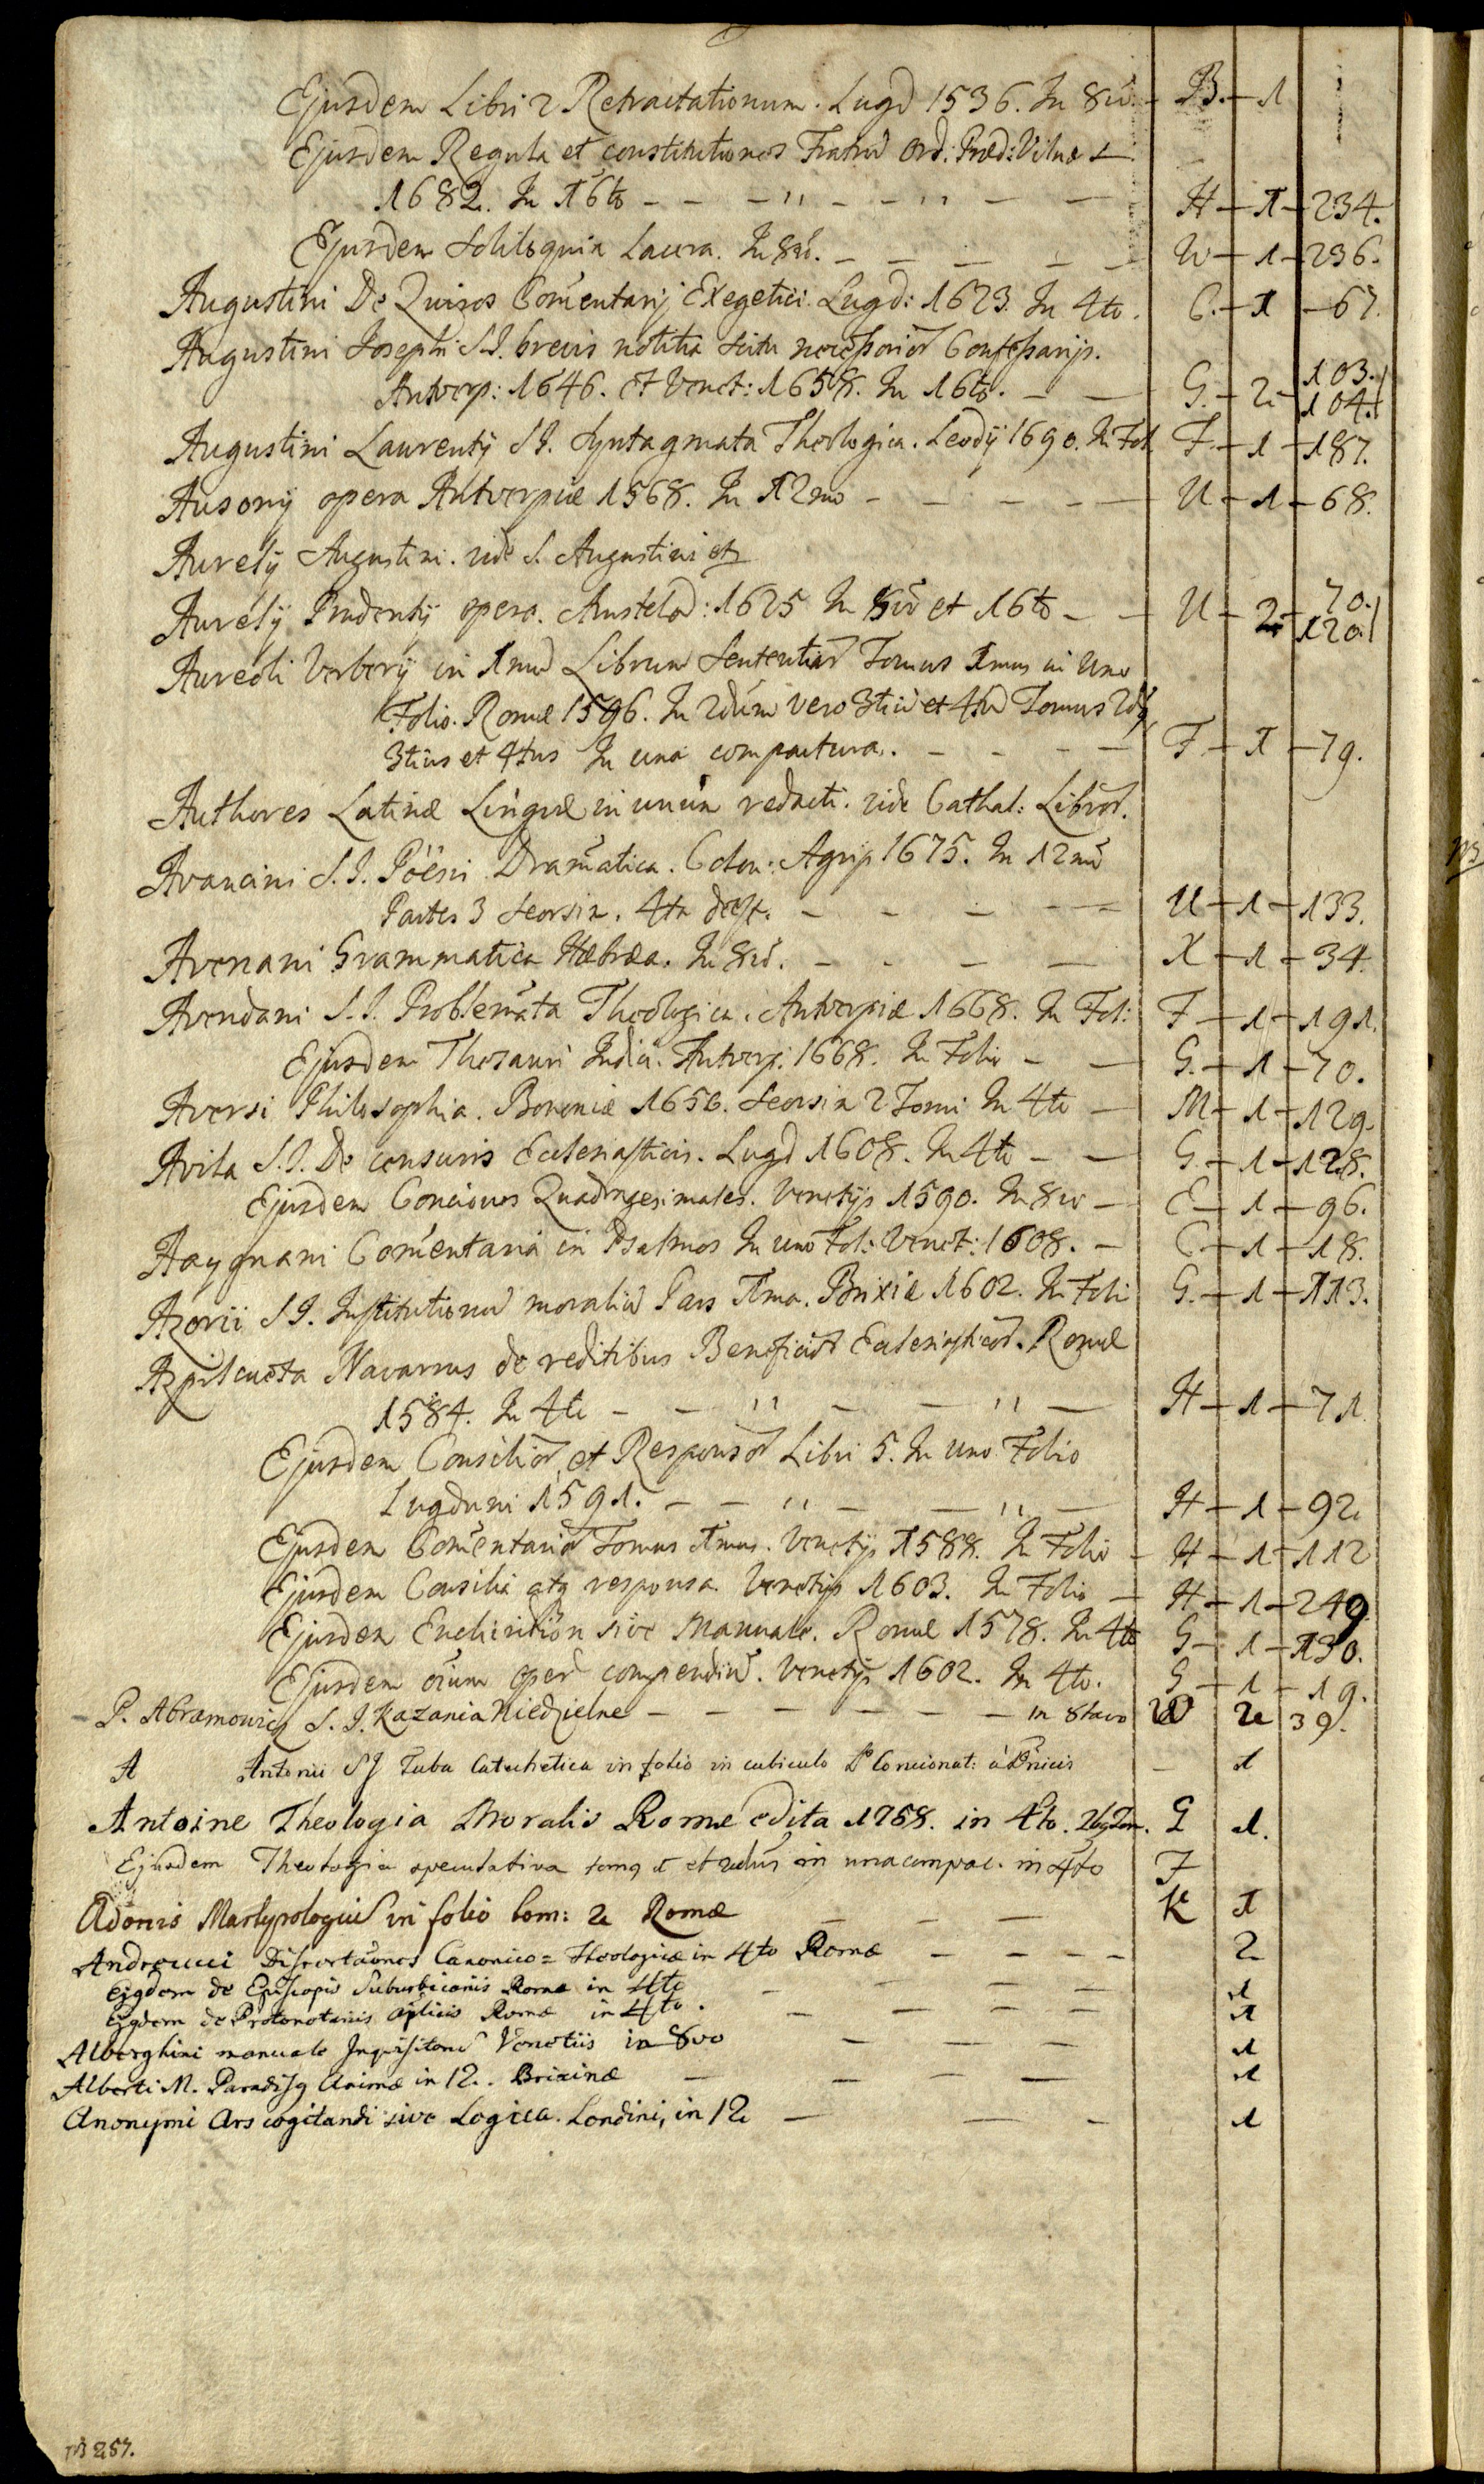 Ejusdem Libri 2 Retractationum. Lugd 1536. In 8vo. — B. — 1
Ejusdem Regula et constitutiones Fratrū Ord: Præd: Vilnæ
1682. In 16to — — — " — — " — — H — 1 — 234.
Ejusdem Soliloquia Lacera. In 8vo. — — — — — W — 1 — 236.
Augustini De Quiros Com̄entarij Exegetici. Lugd: 1623. In 4to. C. — 1 — 67.
Augustini Josephi S.J. brevis notitia scitu necessarior Confessarijs.
Antverp: 1646. et Venet: 1658. In 16to. — — G. — 2 — 103. 104.
Augustini Laurentij S J. Syntagmata Theologica. Leodij 1690. In Fol. F. — 1 — 187.
Ausonij opera Antverpiæ 1568. In 12mo — — — — — U — 1 — 68.
Aurelij Augustini. vide S. Augustini
Aurelij Prudentij opera. Amstelod: 1625 In 8vo et 16to — — U — 2 — 70. 120.
Aureoli Verberij in 1mū Librum Sententiar Tomus 1mus in uno
Folio. Romæ 1596. In 2dum vero 3tiū et 4tū Tomus 2dus
3tius et 4tus In una compactura. — — — — F — 1 — 79.
Authores Latinæ Linguæ in unum redacti. vide Cathal: Libror.
Avancini S.J. Pöesis Dram̄atica. Colon: Agrip 1675. In 12mo
Partes 3 seorsim. 4ta deest. — — — — U — 1 — 133.
Avenani Grammatica Hæbræa. In 8vo. — — — — X — 1 — 34.
Avendani S.J. Problemata Theologica. Antverpiæ 1668. In Fol: F — 1 — 191.
Ejusdem Thesauri Indici. Antverp. 1668. In Folio — — G. — 1 — 70.
Aversi Philosophia. Bononiæ 1650. Seorsim 2 Tomi In 4to — M — 1 — 129.
Avila S.J. De censuris Eclesiasticis. Lugd 1608. In 4to — — G. — 1 — 128.
Ejusdem Conciones Quadragesimales. Venetijs 1590. In 8vo — E — 1 — 96.
Aaygnani Com̄entaria in Psalmos In uno Fol: Venet: 1608. — C. — 1 — 18.
Azorii S J. Institutionū moraliū Pars 1ma. Brixiæ 1602. In Foli G. — 1 — 113.
Azpilcueta Navarrus de reditibus Beneficior Eclesiasticor. Romæ
1584. In 4to — — " — — " — H — 1 — 71.
Ejusdem Consilior et Responsor Libri 5. In uno Folio
Lugduni 1591. — — " — — " — H — 1 — 92
Ejusdem Com̄entarior Tomus 1mus. Venetijs 1588. In Folio — H — 1 — 112
Ejusdem Consilia atq responsa. Venetijs 1603. In Folio — H — 1 — 249
Ejusdem Enchiridion sive Manuale. Romæ 1578. In 4to G — 1 — 130.
Ejusdem oīum operū compendiū. Venetijs 1602. In 4to. G — 1 — 19.
P. Abramowicz S. J. Kazania Niedzielne — — — — — — in 8tavo W 2 39.
A Antonii S J Tuba Catechetica in folio in cubiculo P Concionat: à Dnicis — 1
Antoine Theologia Moralis Romæ edita 1758. in 4to. 2bg Tom. G 1.
Ejusdem Theologia speculativa tomg 1 et 2dus in una compac. in 4to F
Adonis Martyrologiū in folio tom: 2 Romæ — — — K 1
Andreucci Disertaōnes Canonico = Theologicæ in 4to Romæ — — — — 2
Ejgdem de Episcopis Suburbicariis Romæ in 4to — — — — 1
Ejgdem de Protonotariis aplicis Romæ in 4to. — — — — 1
Alberghini manuale Inquisitorū Venetiis in 8vo — — — — 1
Alberti M. Paradisg Animæ in 12. Brixinæ — — — — 1
Anonymi Ars cogitandi sive Logica. Londini, in 12 — — — 1
B 257.